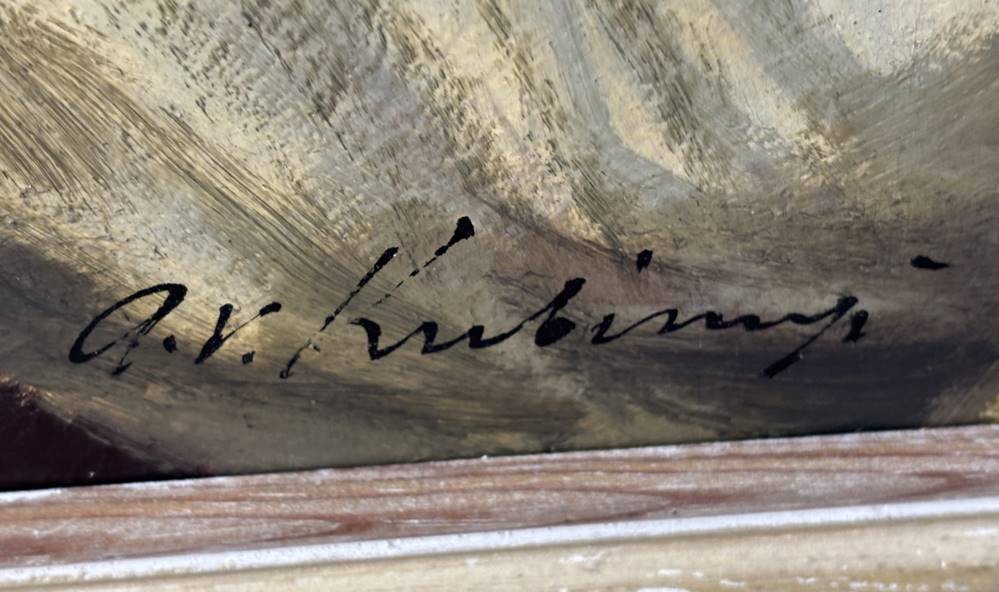 A. v. Kubinyi